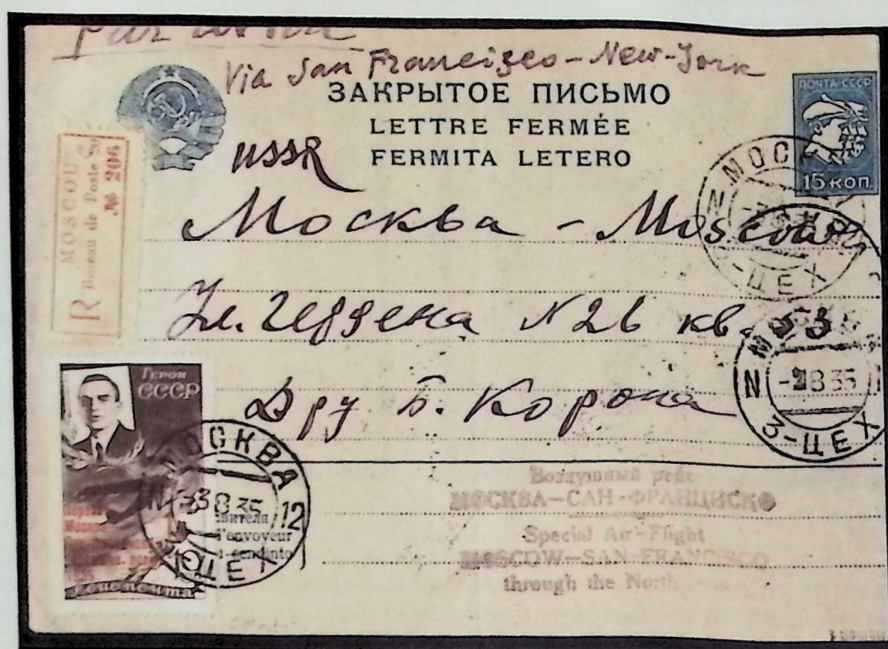 par avion
Via San Francisco - New-York
ЗАКРЫТОЕ ПИСЬМО
LETTRE FERMÉE
FERMITA LETERO
ПОЧТА-СССР
15 КОП.
USSR
MOSCOU
Bureau de Poste
№ 206
R
Москва - Moscou
Ул. Герцена N 26 кв. 53
Д-ру Б. Корона
МОСКВА
3-ЦЕХ
МОСКВА
3-ЦЕХ
Герои
СССР
Леваневский
МОСКВА
12
ЦЕХ
l'envoyeur
Воздушный рейс
МОСКВА-САН-ФРАНЦИСКО
Special Air-Flight
MOSCOW-SAN-FRANCISCO
through the North